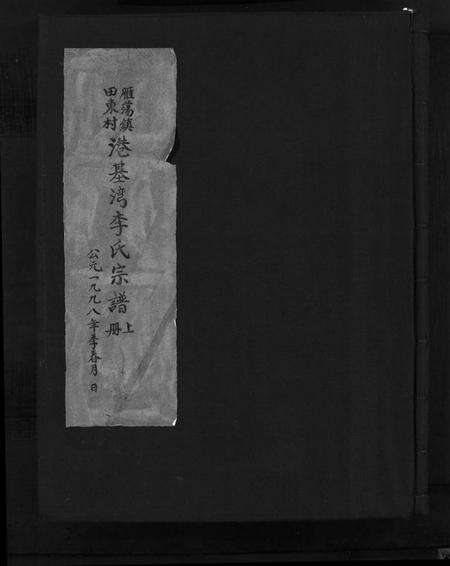 雁蕩鎮
田東村
港基湾李氏宗譜
上册
公元一九九八年季春月 日